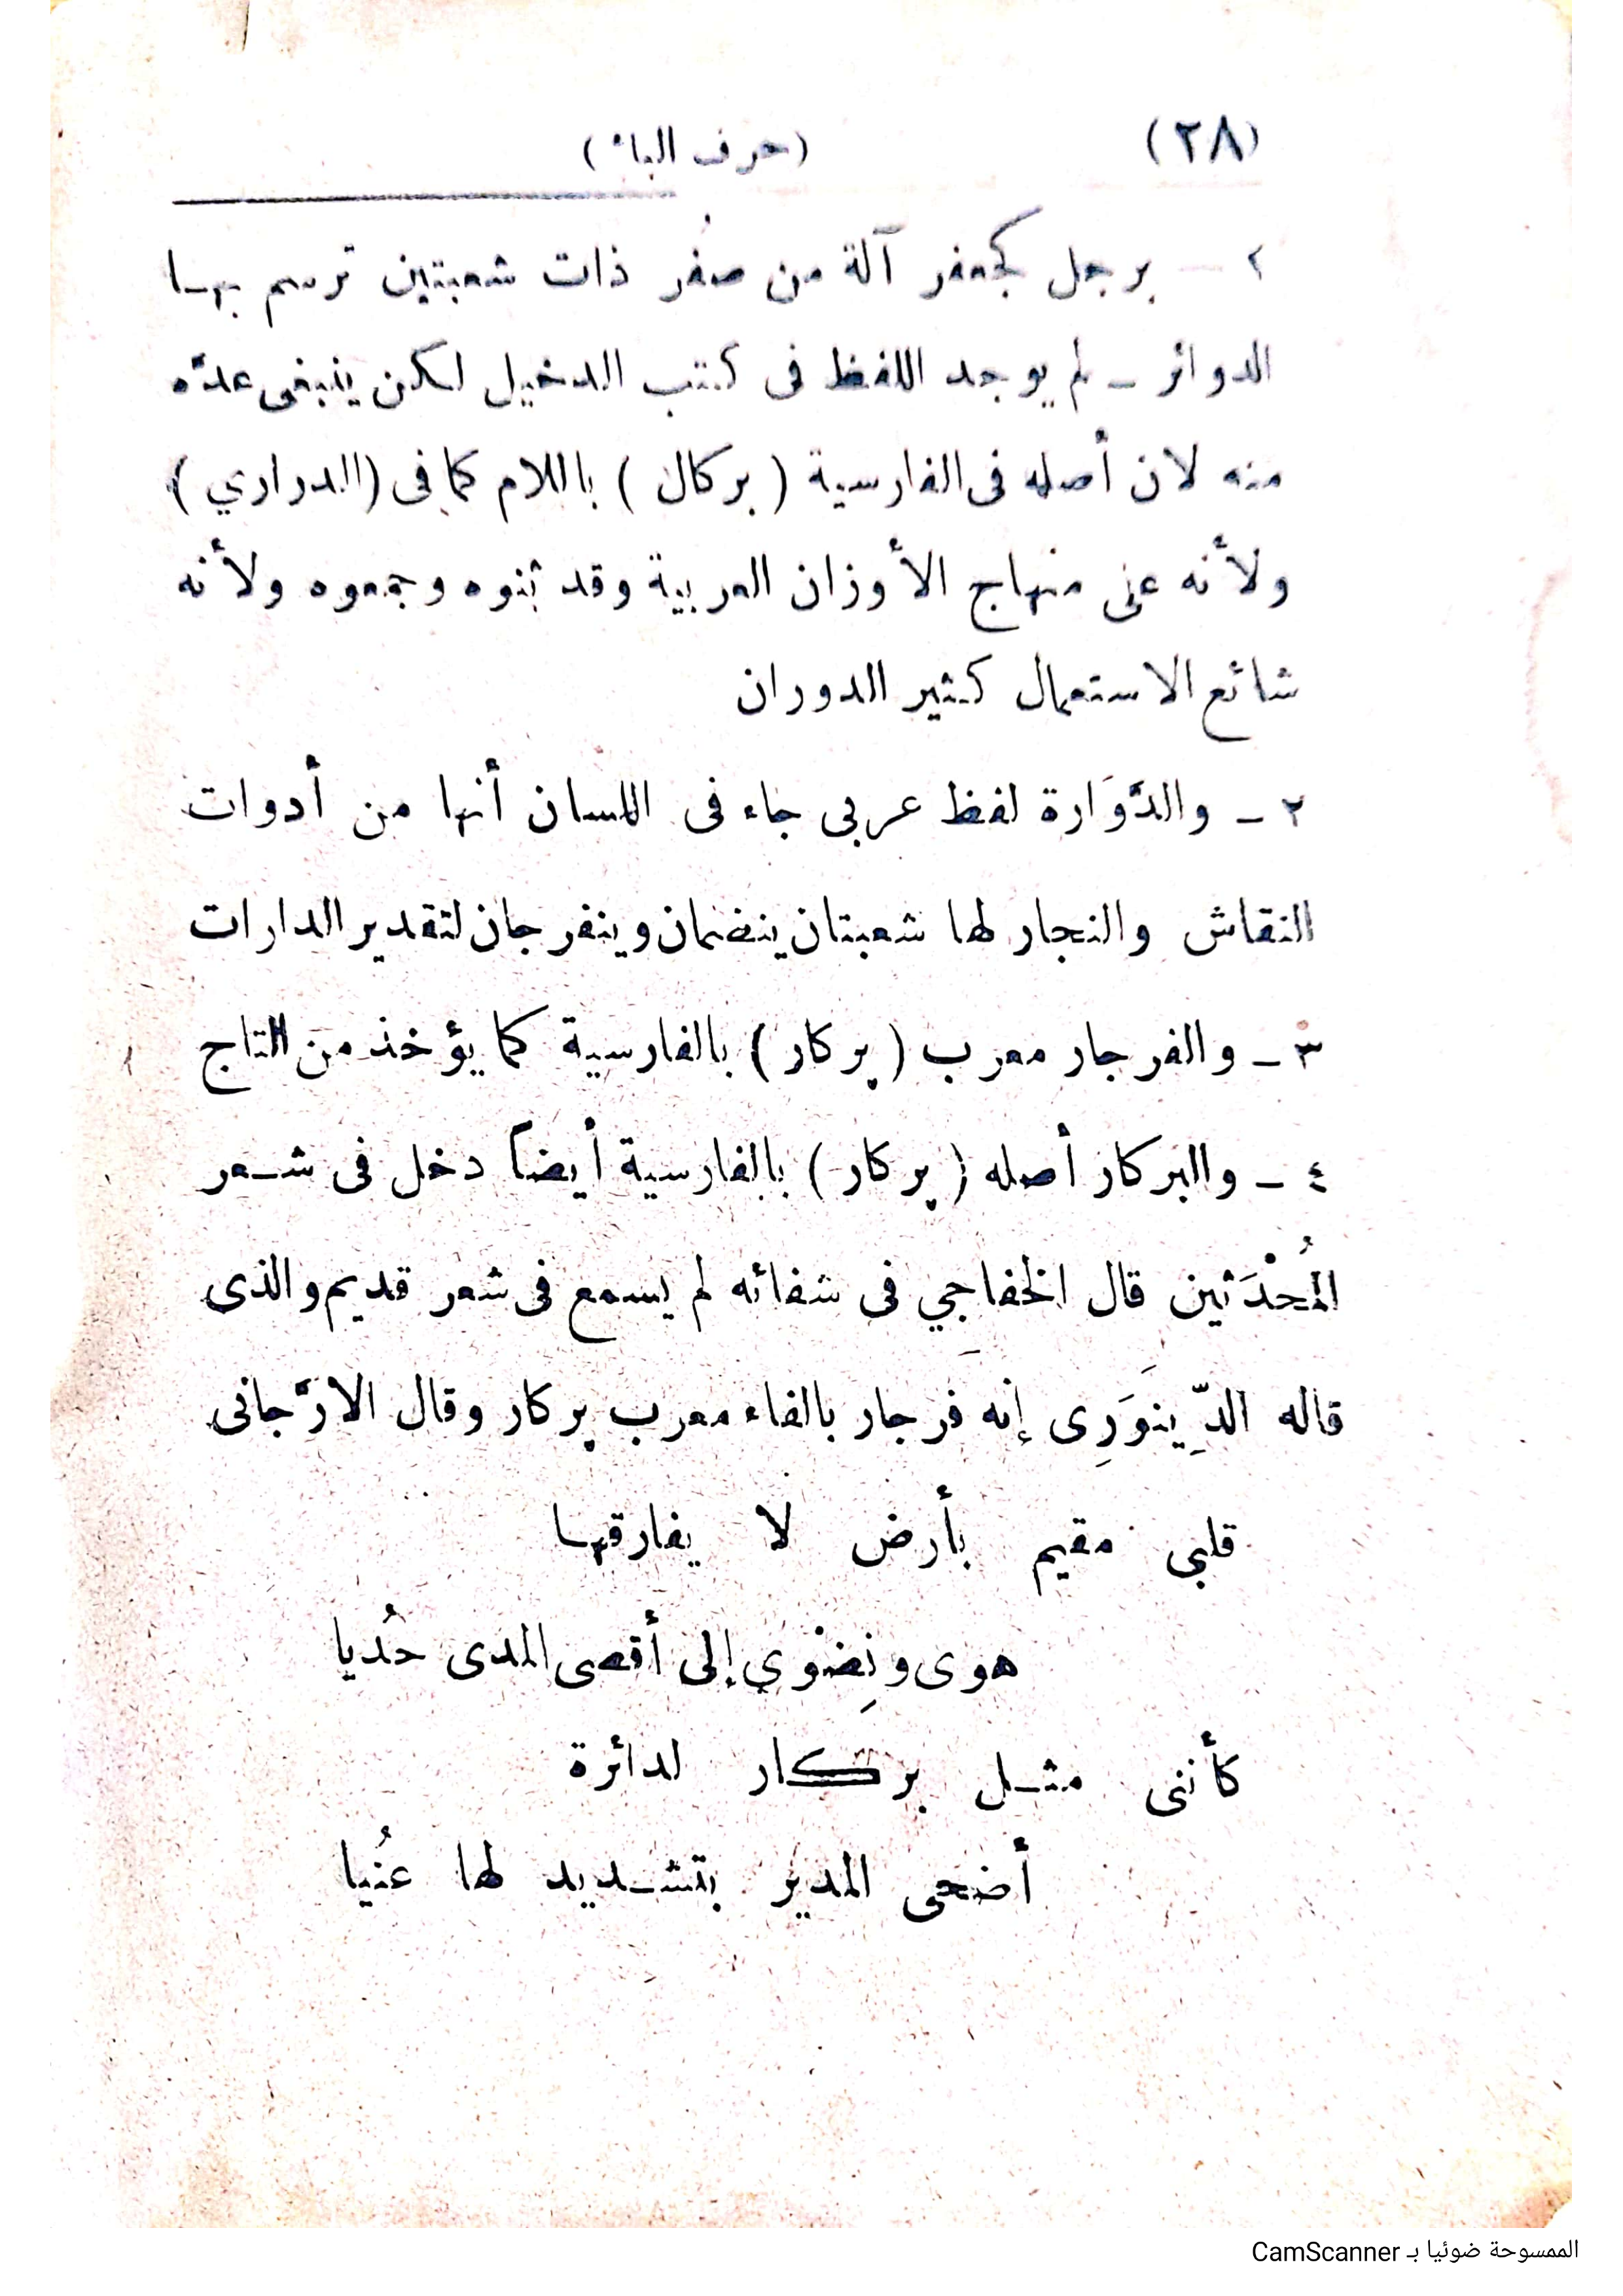 (٢٨) (حرف الباء)
١ — برجل كجعفر آلة من صُفر ذات شعبتين ترسم بهـا
الدوائر ـ لم يوجد اللفظ فى كتب الدخيل لـكن ينبغى عدّه
منه لان أصله فى الفارسية ( بركال ) باللام كما فى (الدراري)
ولأنه على منهاج الأوزان العربية وقد ثنوه وجمعوه ولأنه
شائع الاستعمال كثير الدوران
٢ ـ والدَّوَارة لفظ عربى جاء فى اللسان أنها من أدوات
النقاش والنجار لها شعبتان ينضمان وينفرجان لتقدير الدارات
٣ ـ والفرجار معرب ( پركار ) بالفارسية كما يؤخذ من التاج
٤ ـ والبركار أصله ( پركار ) بالفارسية أيضاً دخل فى شـعر
المُحْدَثين قال الخفاجِي فى شفائه لم يسمع فى شعر قديم والذى
قاله الدِّينَوَرِى إنه فرجار بالفاء معرب پركار وقال الارَّجانى
قلبى مقيم بأرض لا يفارقهـا
هوى ونِضْوي إلى أقصى المدى حُديا
كأننى مثـل بركار لدائرة
أضحى المدير بتشـديد لها عُنيا
الممسوحة ضوئيا بـ CamScanner